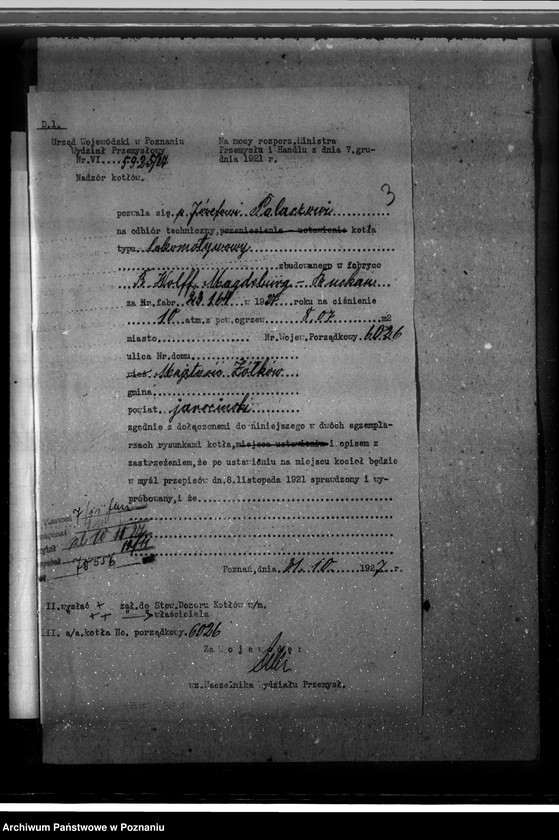 D.1.
Urząd Wojewódzki w Poznaniu
Wydział Przemysłowy
Nr.VI....5925/27
Nadzór kotłów.
Na mocy rozporz.Ministra
Przemysłu i Handlu z dnia 7.gru-
dnia 1921 r.
3
pozwala się p. Józefowi Palaczowi
na odbiór techniczny, przeniesienie - ustawienie kotła
typu lokomotywowy
zbudowanego w fabryce
R. Wolff. Magdeburg - Buckau
za Nr.fabr. 23.164 w 1927 roku na ciśnienie
10 atm.z pow.ogrzew. 8,07 m2
miasto Nr.Wojew.Porządkowy. 6026
ulica Nr.domu
wieś Majętność Żółków
gmina
powiat jarociński
zgodnie z dołączonemi do niniejszego w dwóch egzempla-
rzach rysunkami kotła, miejsca ustawienia i opisem z
zastrzeżeniem, że po ustawieniu na miejscu kocioł będzie
w myśl przepisów dn.8.listopada 1921 sprawdzony i wy-
próbowany, i że
78556
Poznań, dnia 21.10 1927 r.
II. wysłać + zał. do Stow.Dozoru Kotłów w/m.
++ właściciela
III. a/a.kotła No. porządkowy. 6026
Za Wojewodę:
wz.Naczelnika Wydziału Przemysł.
Archiwum Państwowe w Poznaniu